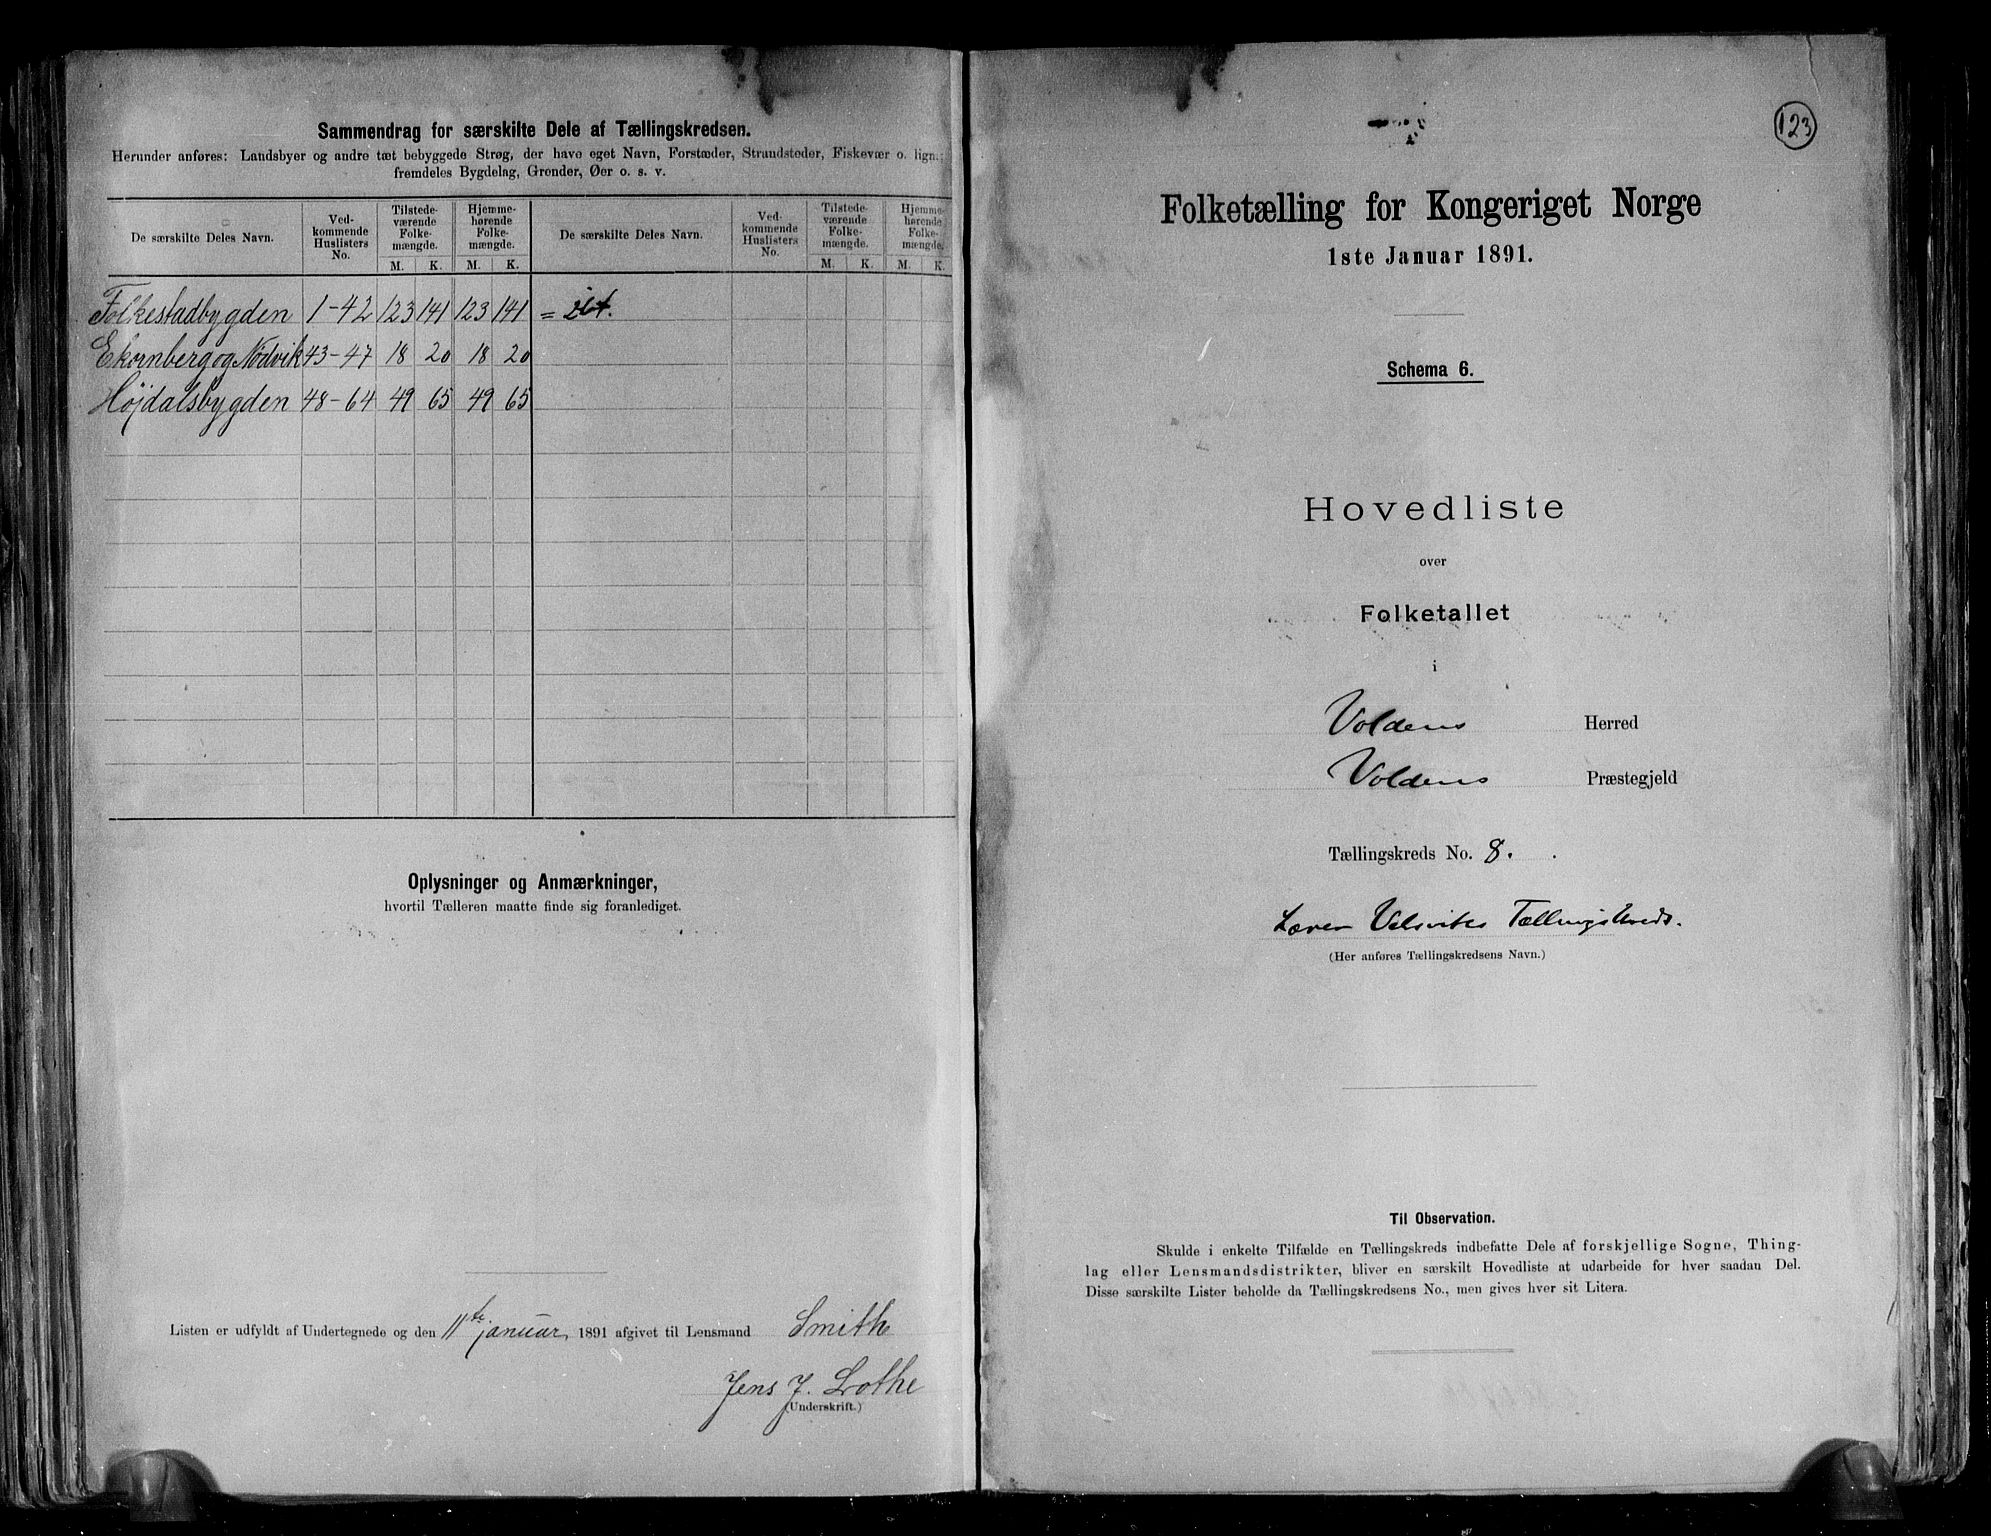 Sammendrag for særskilte Dele af Tællingskredsen.
Herunder anføres: Landsbyer og andre tæt bebyggede Strøg, der have eget Navn, Forstæder, Strandsteder, Fiskevær o. lign.;
fremdeles Bygdelag, Grender, Øer o. s. v.
De særskilte Deles Navn. Ved-kommende Huslisters No. Tilstede-værende Folke-mængde. M. K. Hjemme-hørende Folke-mængde. M. K. De særskilte Deles Navn. Ved-kommende Huslisters No. Tilstede-værende Folke-mængde. M. K. Hjemme-hørende Folke-mængde. M. K.
Folkestadbygden 1-42 123 141 123 141 = 264.
Ekornberg og Nødvik 43-47 18 20 18 20
Højdalsbygden 48-64 49 65 49 65
Oplysninger og Anmærkninger,
hvortil Tælleren maatte finde sig foranlediget.
Listen er udfyldt af Undertegnede og den 11te januar 1891 afgivet til Lensmand Smith
Jens J. Lothe
(Underskrift.)
123
Folketælling for Kongeriget Norge
1ste Januar 1891.
Schema 6.
Hovedliste
over
Folketallet
i
Voldens Herred
Voldens Præstegjeld
Tællingskreds No. 8.
Lærer Velsviks Tællingskreds.
(Her anføres Tællingskredsens Navn.)
Til Observation.
Skulde i enkelte Tilfælde en Tællingskreds indbefatte Dele af forskjellige Sogne, Thing-
lag eller Lensmandsdistrikter, bliver en særskilt Hovedliste at udarbeide for hver saadan Del.
Disse særskilte Lister beholde da Tællingskredsens No., men gives hver sit Litera.